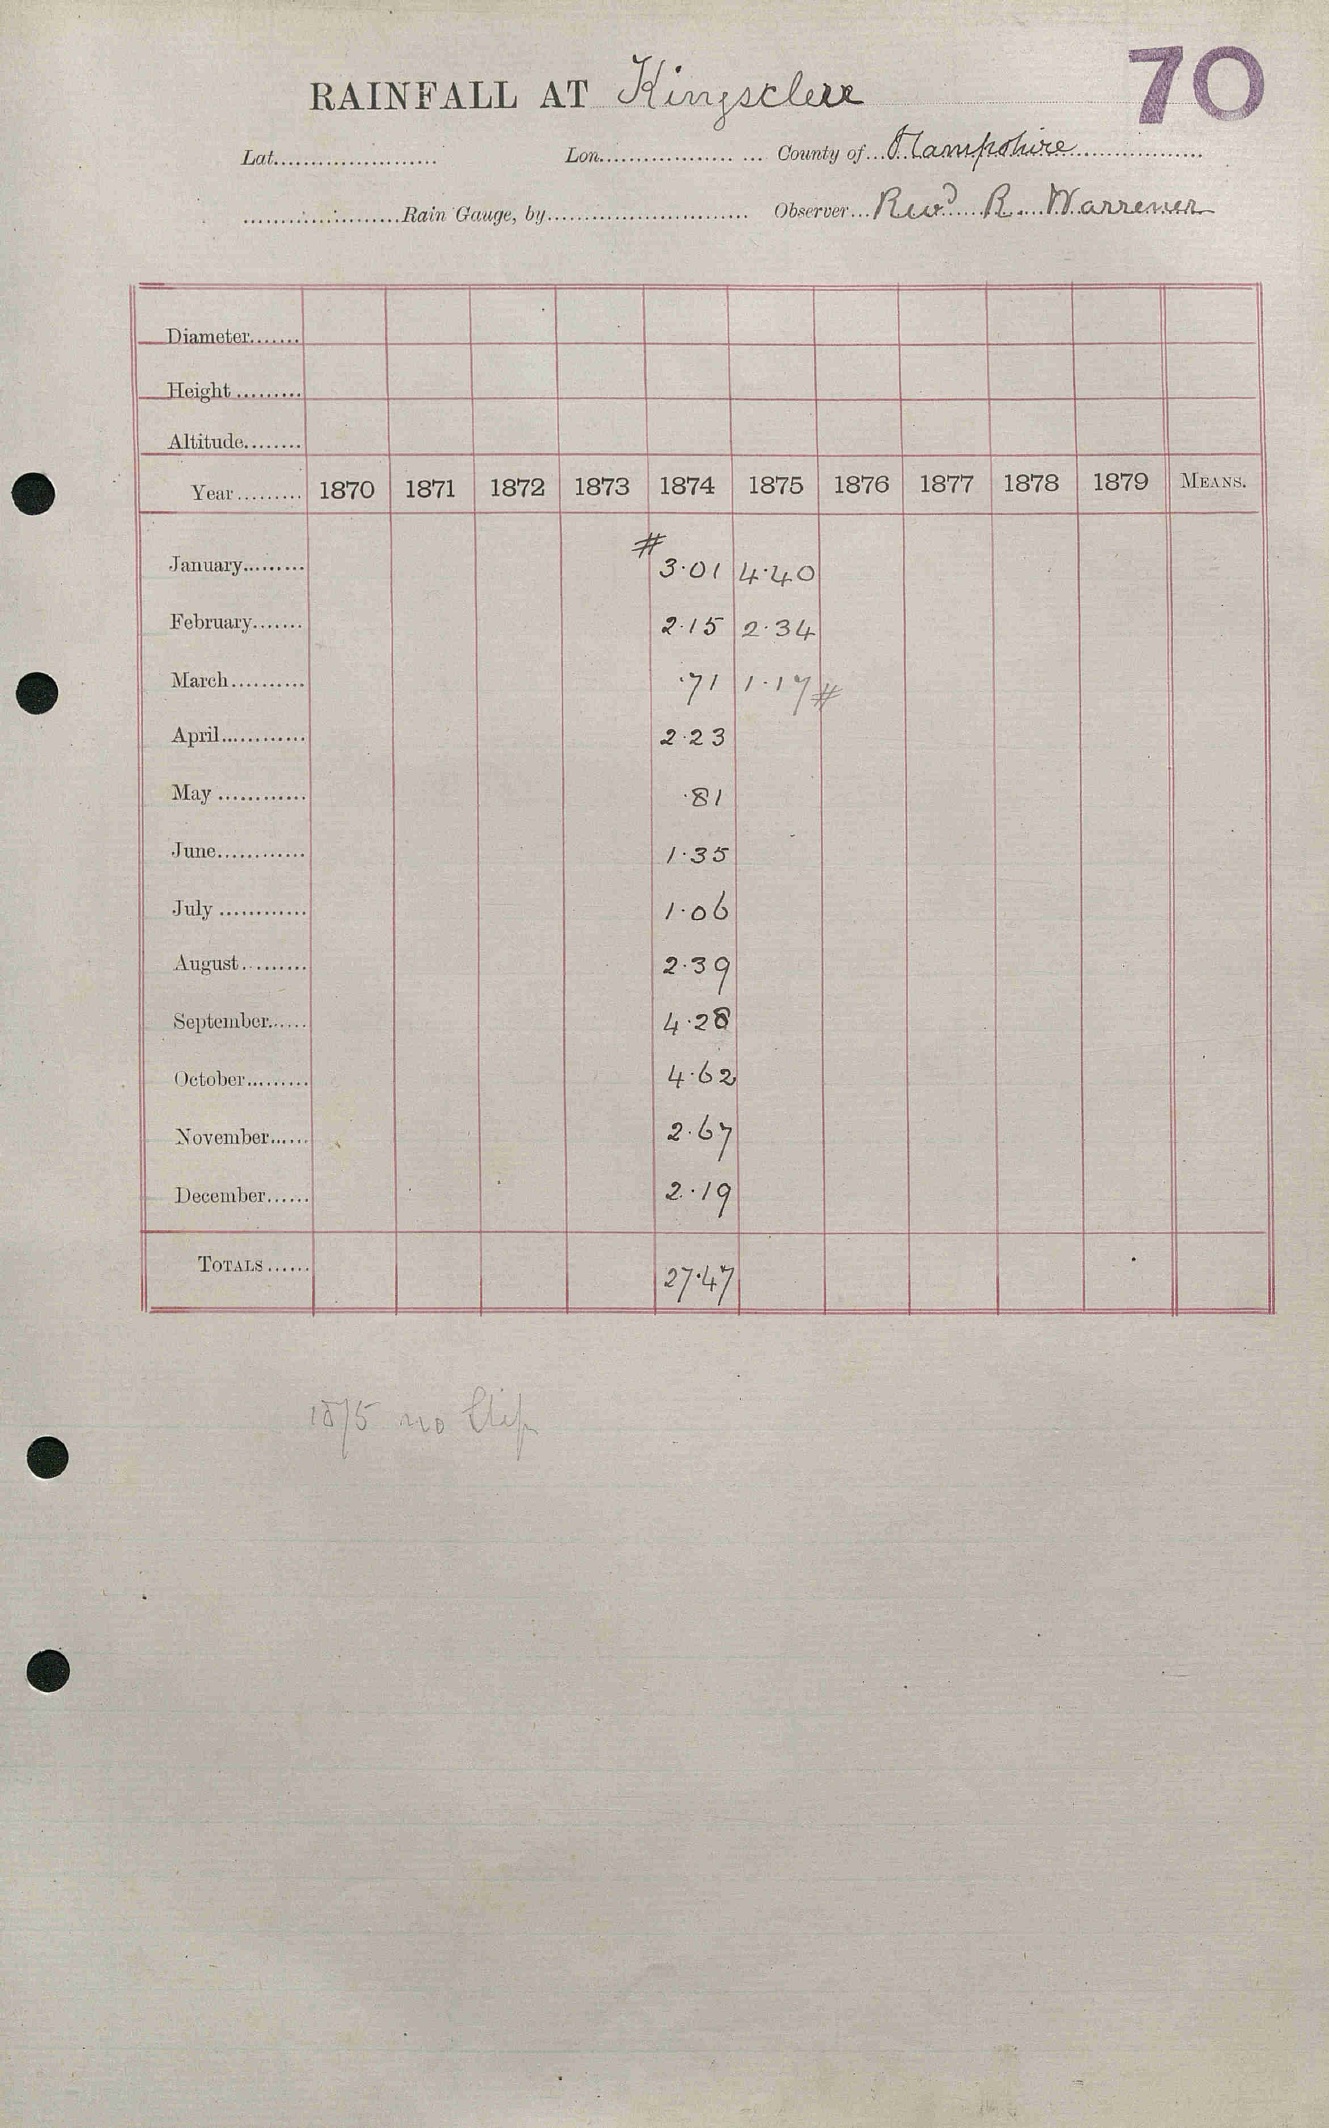 70
RAINFALL AT Kingsclere
Lat........ Lon........ County of Hampshire
........Rain Gauge, by........ Observer Revd R. Warrener
Diameter.......
Height.........
Altitude........
Year......... 1870 1871 1872 1873 1874 1875 1876 1877 1878 1879 MEANS.
January......... # 3·01 4·40
February....... 2·15 2·34
March.......... ·71 1·17 #
April............ 2·23
May ............ ·81
June............ 1·35
July ............ 1·06
August.......... 2·39
September...... 4·28
October......... 4·62
November...... 2·67
December...... 2·19
TOTALS...... 27·47
1875 no Slip